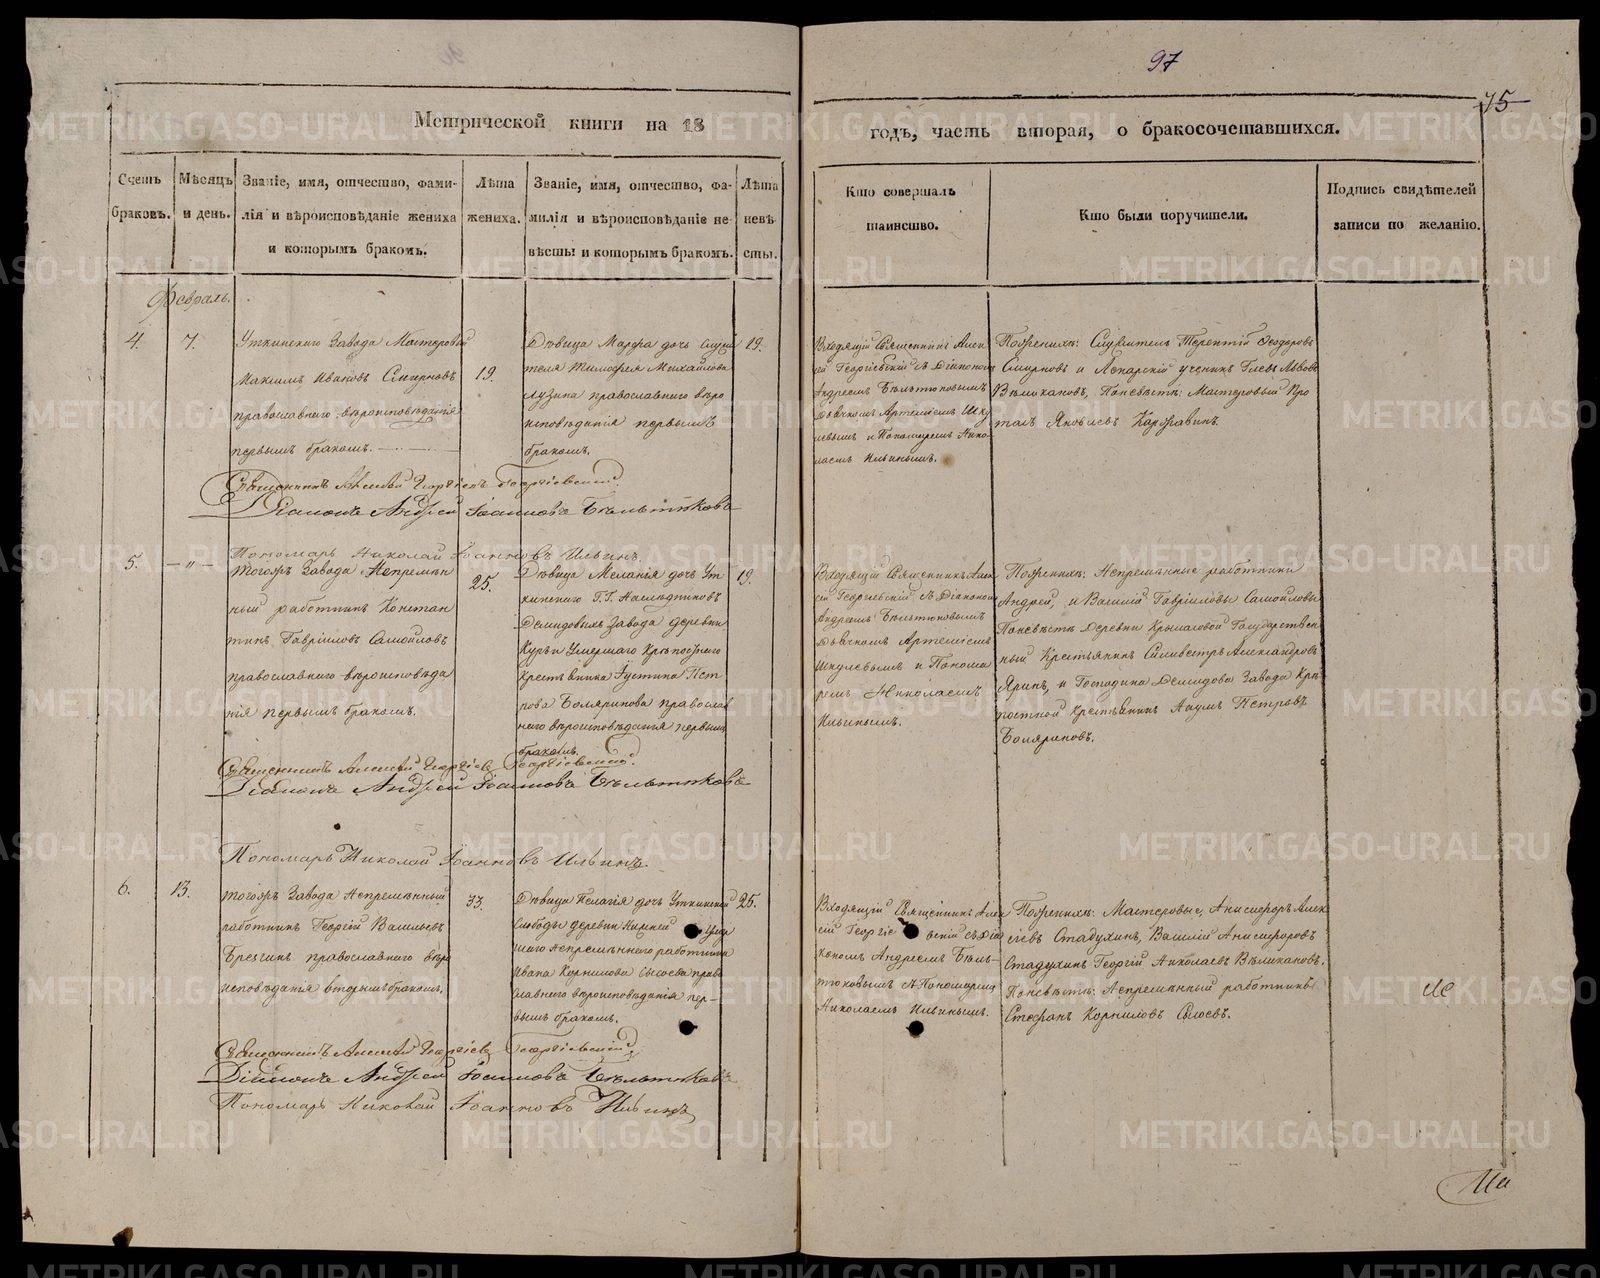 97
75
Метрической книги на 18
годъ, часть вторая, о бракосочетавшихся.
Счетъ браковъ.
Мѣсяцъ и день.
Званіе, имя, отчество, фами-
лія и вѣроисповѣданіе жениха
и которымъ бракомъ.
Лѣта жениха.
Званіе, имя, отчество, фа-
милія и вѣроисповѣданіе не-
вѣсты и которымъ бракомъ.
Лѣта невѣ-
сты.
Кто совершалъ
таинство.
Кто были поручители.
Подпись свидѣтелей
записи по желанію.
Февраль.
4.
7.
Уткинскаго Завода Мастеровой
Максимъ Ивановъ Смирновъ
православнаго вѣроисповѣданія
первымъ бракомъ.
19.
Дѣвица Марфа дочь Служи
теля Тимофея Михайлова
Лузина православнаго вѣро
исповѣданія первымъ
бракомъ.
19.
Входящій Священникъ Алек
сѣй Георгіевскій съ Діакономъ
Андреемъ Бѣльтюковымъ
Дьячкомъ Артеміемъ Шку
левымъ и Пономаремъ Нико-
лаемъ Ильинымъ.
Поженихѣ: Служитель Терентій Ѳеодоровъ
Смирновъ и Лекарскій ученикъ Глебъ Львовъ
Великановъ, Поневѣстѣ: Мастеровый Про
талъ Яковлевъ Каржавинъ.
Священникъ Алексѣй Георгіевъ Георгіевскій.
Діаконъ Андрей Іоанновъ Бѣльтюковъ
Пономарь Николай Іоанновъ Ильинъ
5.
— „ —
Тогожъ Завода Непремѣн
ный работникъ Констан
тинъ Гавриловъ Самойловъ
православнаго вѣроисповѣда
нія первымъ бракомъ.
25.
Дѣвица Меланія дочь Ут
кинскаго Г.Г. Наслѣдниковъ
Демидовыхъ Завода деревни
Курьи Умершаго Крѣпостнаго
Крестьянина Густина Пет
рова Бояринова православ
наго вѣроисповѣданія первымъ
бракомъ.
19.
Входящій Священникъ Алек
сѣй Георгіевскій съ Діакономъ
Андреемъ Бѣльтюковымъ
Дьячкомъ Артеміемъ
Шкулевымъ и Понома
ремъ Николаемъ
Ильинымъ.
Поженихѣ: Непремѣнные работники
Андрей, и Василій Гавриловы Самойловы
Поневѣстѣ Деревни Крыласовой Государствен
ный Крестьянинъ Силивестръ Александровъ
Яринъ, и Господина Демидова Завода Крѣ
постной Крестьянинъ Наумъ Петровъ
Бояриновъ.
Священникъ Алексѣй Георгіевъ Георгіевскій.
Діаконъ Андрей Іоанновъ Бѣльтюковъ
Пономарь Николай Іоанновъ Ильинъ.
6.
13.
Тогожъ Завода Непремѣнный
работникъ Георгій Васильевъ
Брезгинъ православнаго вѣро
исповѣданія вторымъ бракомъ.
33.
Дѣвица Пелагія дочь Уткинской
Слободы деревни Нижней Умер
шаго Непремѣннаго работника
Ивана Корнилова Сысоева право
славнаго вѣроисповѣданія пер-
вымъ бракомъ.
25.
Входящій Священникъ Алек
сѣй Георгіевскій съ Діа
кономъ Андреемъ Бѣль-
тюковымъ и Пономаремъ
Николаемъ Ильинымъ.
Поженихѣ: Мастеровые, Анисифоръ Алек
сіевъ Стадухинъ, Василій Анисифоровъ
Стадухинъ Георгій Николаевъ Великановъ.
Поневѣстѣ: Непремѣнный работникъ
Стефанъ Корниловъ Сысоевъ.
Священникъ Алексѣй Георгіевъ Георгіевскій
Діаконъ Андрей Іоанновъ Бѣльтюковъ
Пономарь Николай Іоанновъ Ильинъ
METRIKI.GASO-URAL.RU